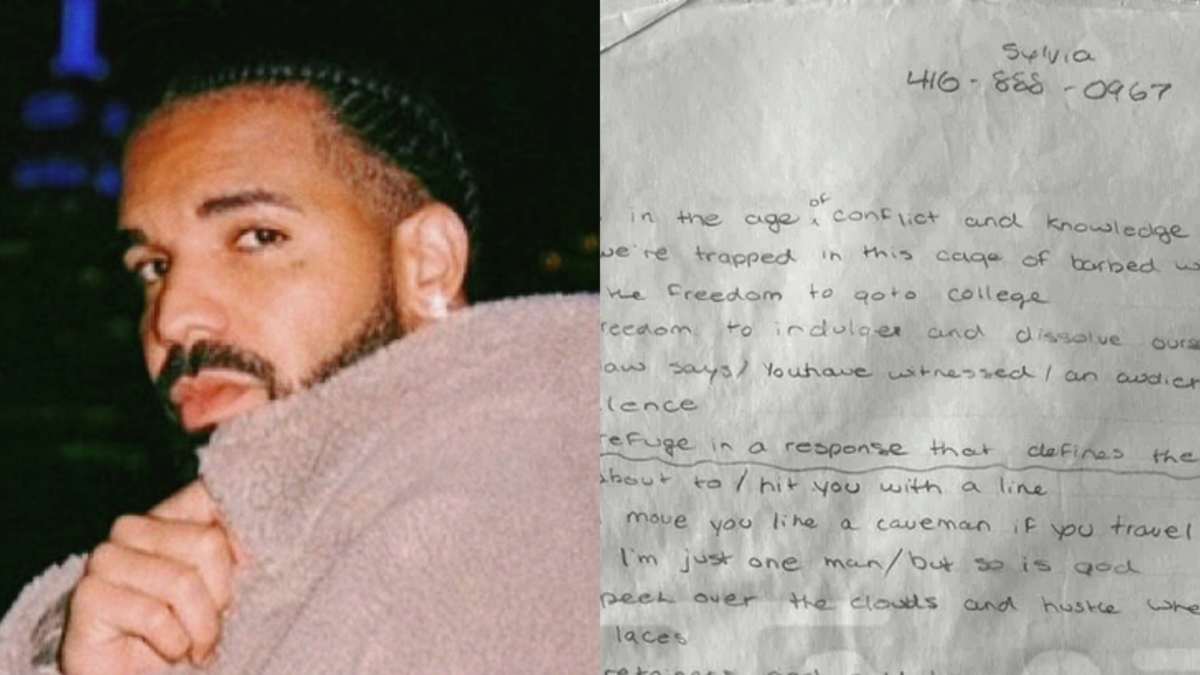 Sylvia
416-888-0967
in the age of conflict and knowledge
we're trapped in this cage of barbed
the freedom to goto college
reedom to indulger and dissolve ours
aw says/ Youhave witnessed / an audien
lence
refuge in a response that defines the
about to / hit you with a line
move you like a caveman if you travel
I'm just one man/but so is god
peek over the clouds and hustle whe
laces